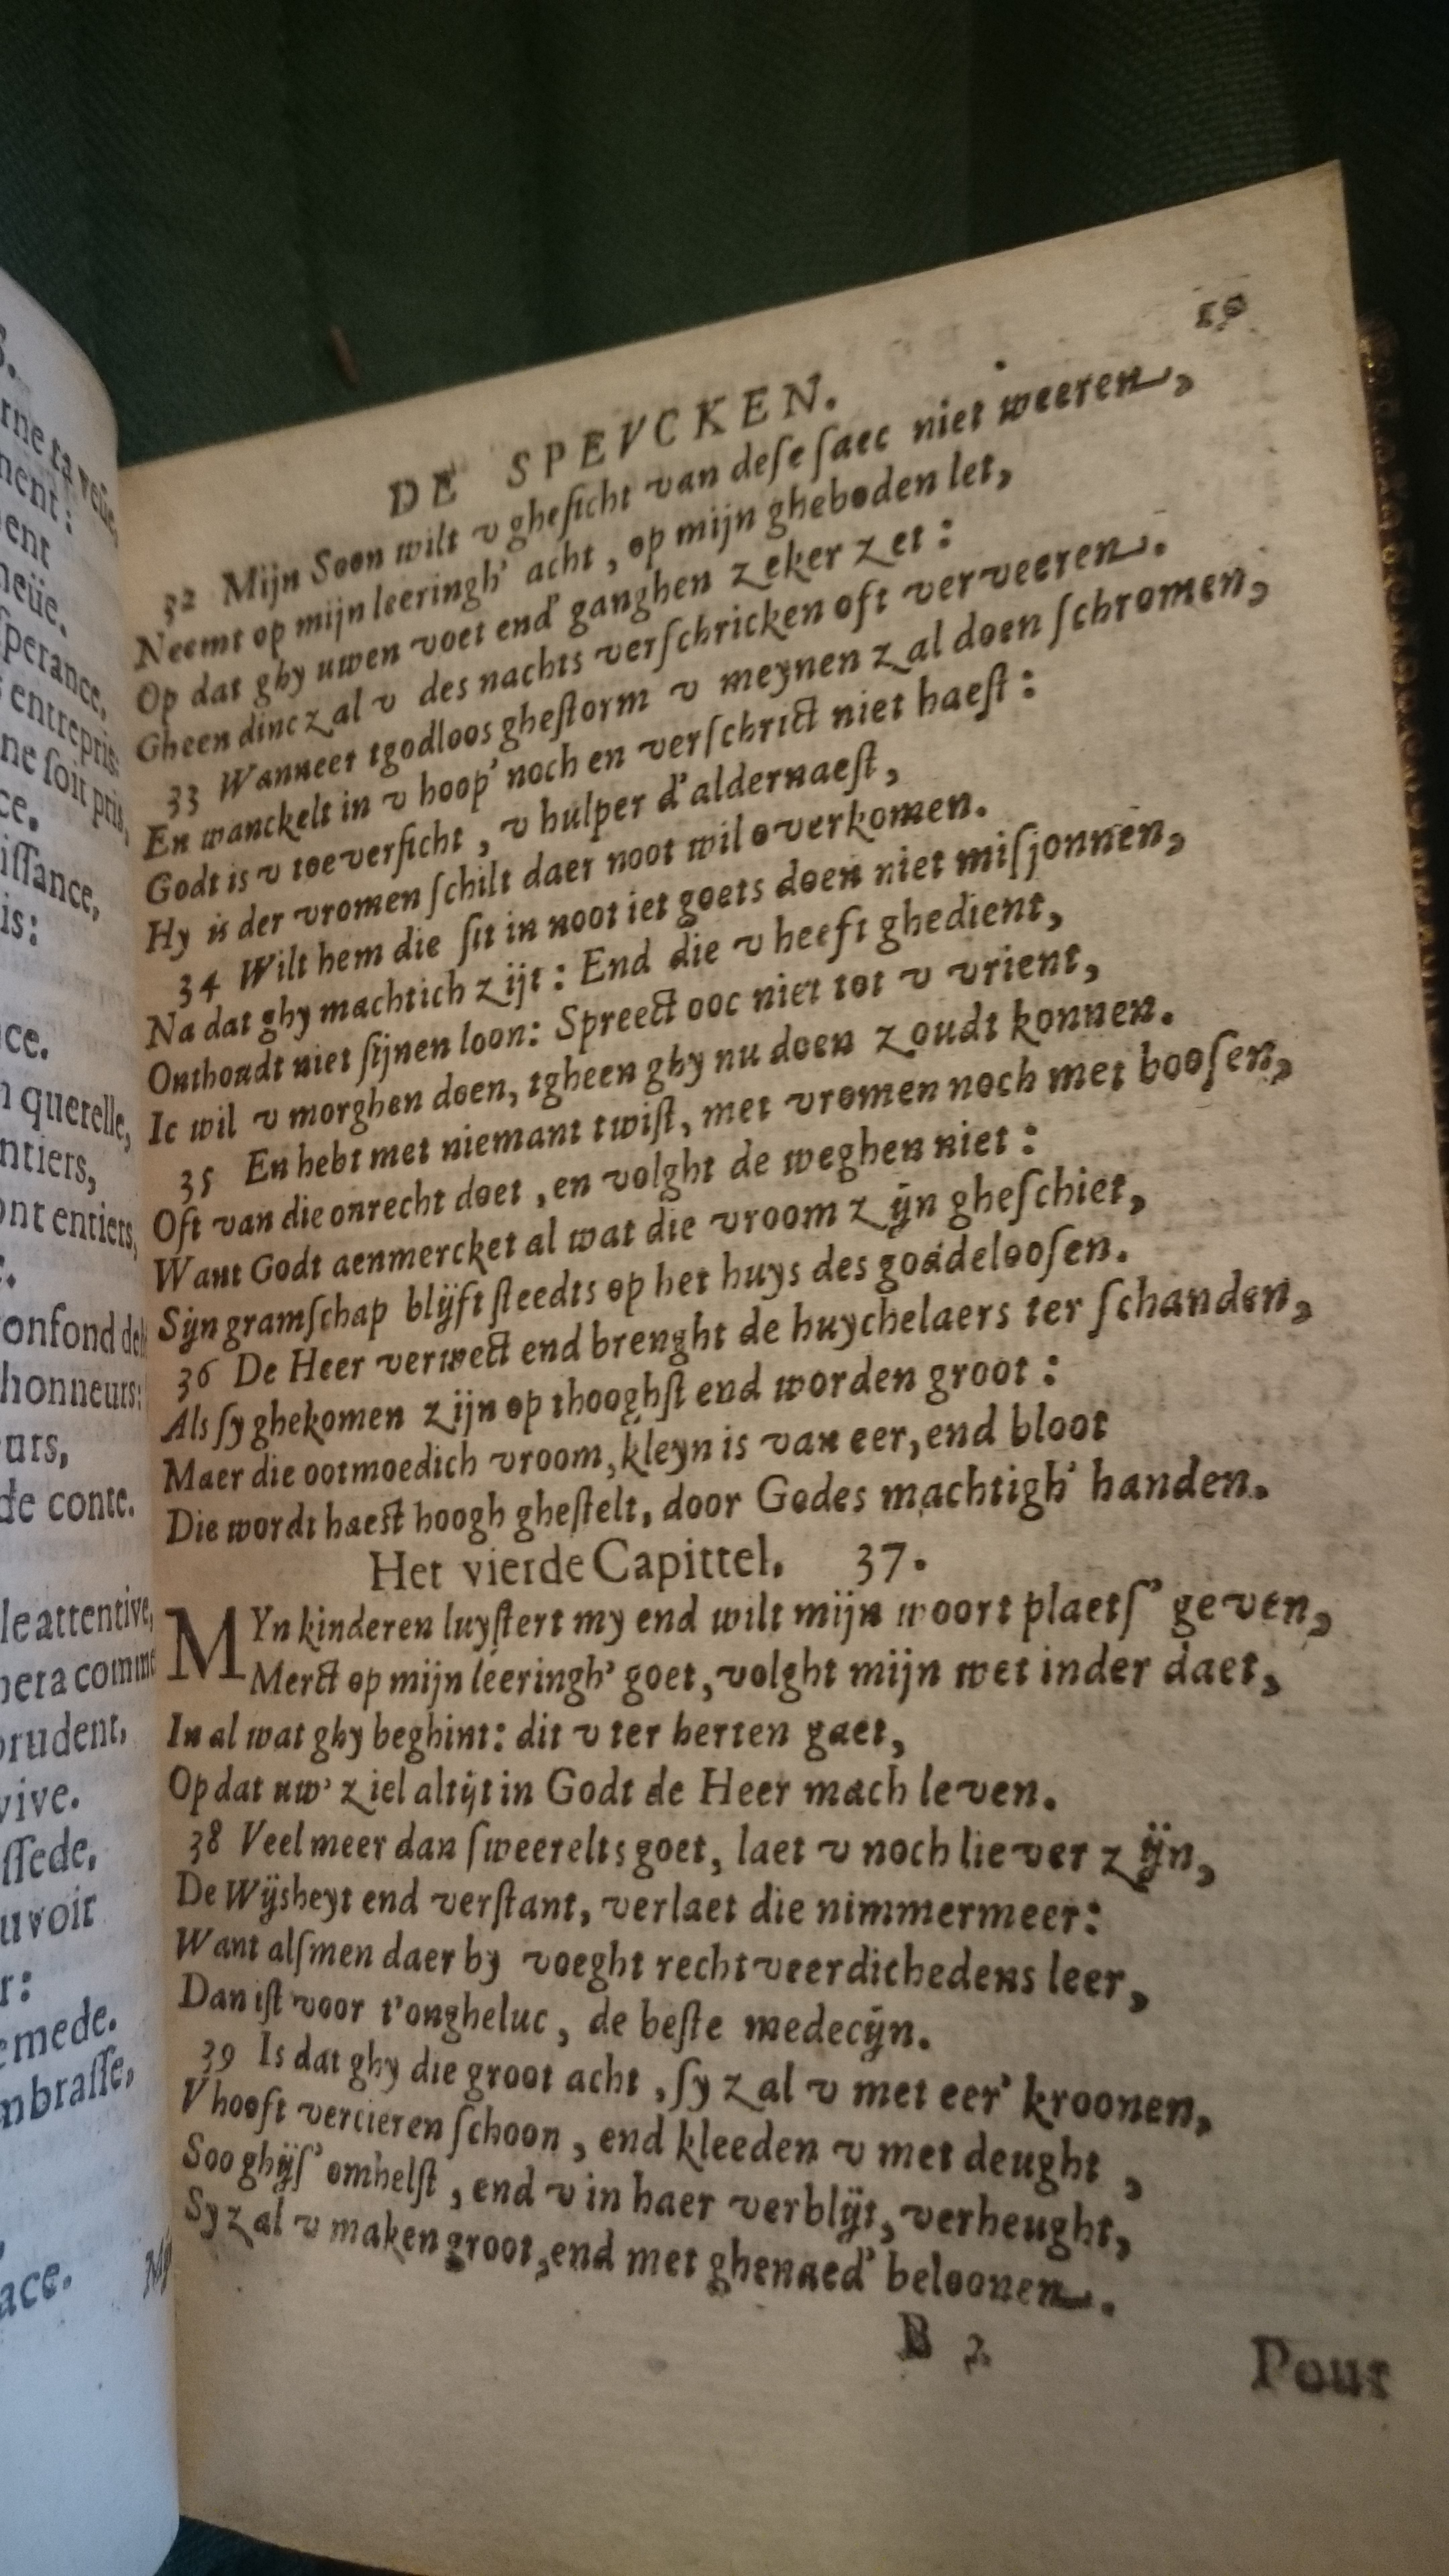 S.
rne ta veüe,
ment:
ent
neüe.
sperance,
s entrepris
ne soit pris,
ce.
issance,
is:
ce.
n querelle,
ntiers,
ont entiers,
onfond de
honneurs:
urs,
de conte.
le attentive,
nera comme
prudent,
vive.
ssede,
uvoir
r:
emede.
mbrasse,
ace.
19
DE SPEVCKEN.
32 Mijn Soon wilt v ghesicht van dese saec niet weeren,
Neemt op mijn leeringh' acht, op mijn gheboden let,
Op dat ghy uwen voet end' ganghen zeker zet:
Gheen dinc zal v des nachts verschricken oft verveeren.
33 Wanneer tgodloos ghestorm v meynen zal doen schromen,
En wanckelt in v hoop' noch en verschrict niet haest:
Godt is v toeversicht, v hulper d'aldernaest,
Hy is der vromen schilt daer noot wil overkomen.
34 Wilt hem die sit in noot iet goets doen niet misjonnen,
Na dat ghy machtich zijt: End die v heeft ghedient,
Onthoudt niet sijnen loon: Spreect ooc niet tot v vrient,
Ic wil v morghen doen, tgheen ghy nu doen zoudt konnen.
35 En hebt met niemant twist, met vromen noch met boosen,
Oft van die onrecht doet, en volght de weghen niet:
Want Godt aenmercket al wat die vroom zijn gheschiet,
Sijn gramschap blijft steedts op het huys des goddeloosen.
36 De Heer verwect end brenght de huychelaers ter schanden,
Als sy ghekomen zijn op thooghst end worden groot:
Maer die ootmoedich vroom, kleyn is van eer, end bloot
Die wordt haest hoogh ghestelt, door Godes machtigh' handen.
Het vierde Capittel. 37.
MYn kinderen luystert my end wilt mijn woort plaets' geven,
Merct op mijn leeringh' goet, volght mijn wet inder daet,
In al wat ghy beghint: dit v ter herten gaet,
Op dat uw' ziel altijt in Godt de Heer mach leven.
38 Veel meer dan sweerelts goet, laet v noch liever zijn,
De Wijsheyt end verstant, verlaet die nimmermeer:
Want alsmen daer by voeght rechtveerdichedens leer,
Dan ist voor t'ongheluc, de beste medecijn.
39 Is dat ghy die groot acht, sy zal v met eer' kroonen,
V hooft vercieren schoon, end kleeden v met deught,
Soo ghijs' omhelst, end v in haer verblijt, verheught,
Sy zal v maken groot, end met ghenaed' beloonen.
B 2
Pour